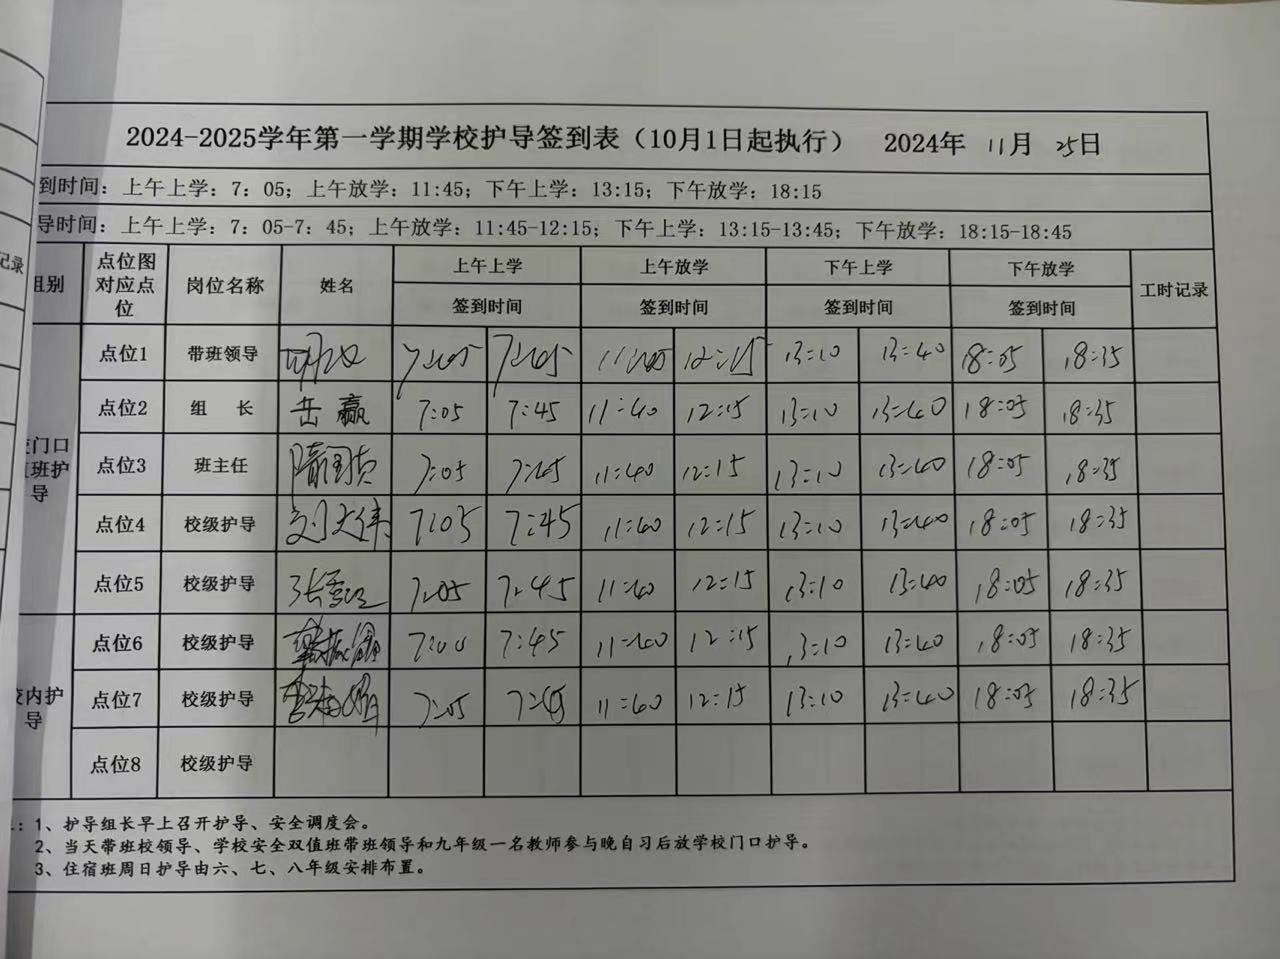 记录
2024-2025学年第一学期学校护导签到表（10月1日起执行） 2024年 11月 25日
到时间：上午上学：7：05；上午放学：11:45；下午上学：13:15；下午放学：18:15
导时间：上午上学：7：05-7：45；上午放学：11:45-12:15；下午上学：13:15-13:45；下午放学：18:15-18:45
组别 点位图对应点位 岗位名称 姓名 上午上学 上午放学 下午上学 下午放学 工时记录
签到时间 签到时间 签到时间 签到时间
点位1 带班领导 12:15 13:10 13:40 18:05 18:35
点位2 组 长 岳赢 7:05 7:45 11:40 12:15 13:10 13:40 18:05 18:35
门口值班护导
点位3 班主任 7:05 7:45 11:40 12:15 13:10 13:40 18:05 18:35
点位4 校级护导 刘大伟 7:05 7:45 11:40 12:15 13:10 13:40 18:05 18:35
点位5 校级护导 7:05 7:45 11:40 12:15 13:10 13:40 18:05 18:35
点位6 校级护导 7:00 7:45 11:40 12:15 13:10 13:40 18:05 18:35
校内护导
点位7 校级护导 7:05 11:40 12:15 13:10 13:40 18:05 18:35
点位8 校级护导
：1、护导组长早上召开护导、安全调度会。
2、当天带班校领导、学校安全双值班带班领导和九年级一名教师参与晚自习后放学校门口护导。
3、住宿班周日护导由六、七、八年级安排布置。